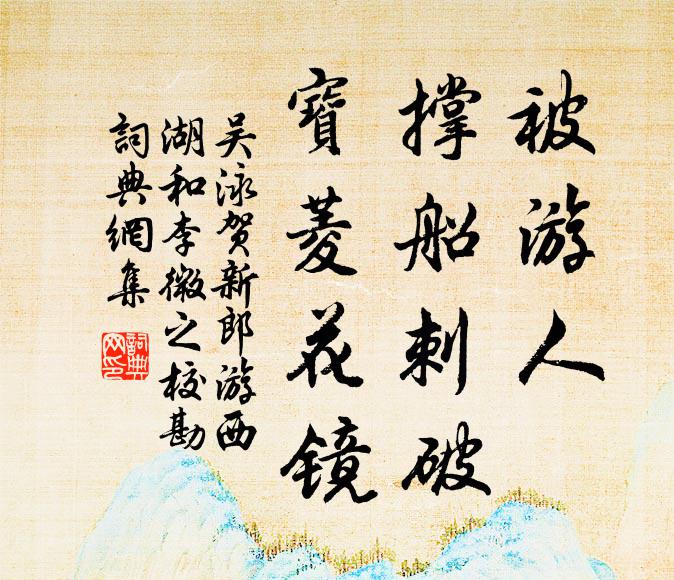 被游人
撑船刺破
寶菱花镜
吴泳贺新郎游西
湖和李微之校勘
詞典網集
詞典網印